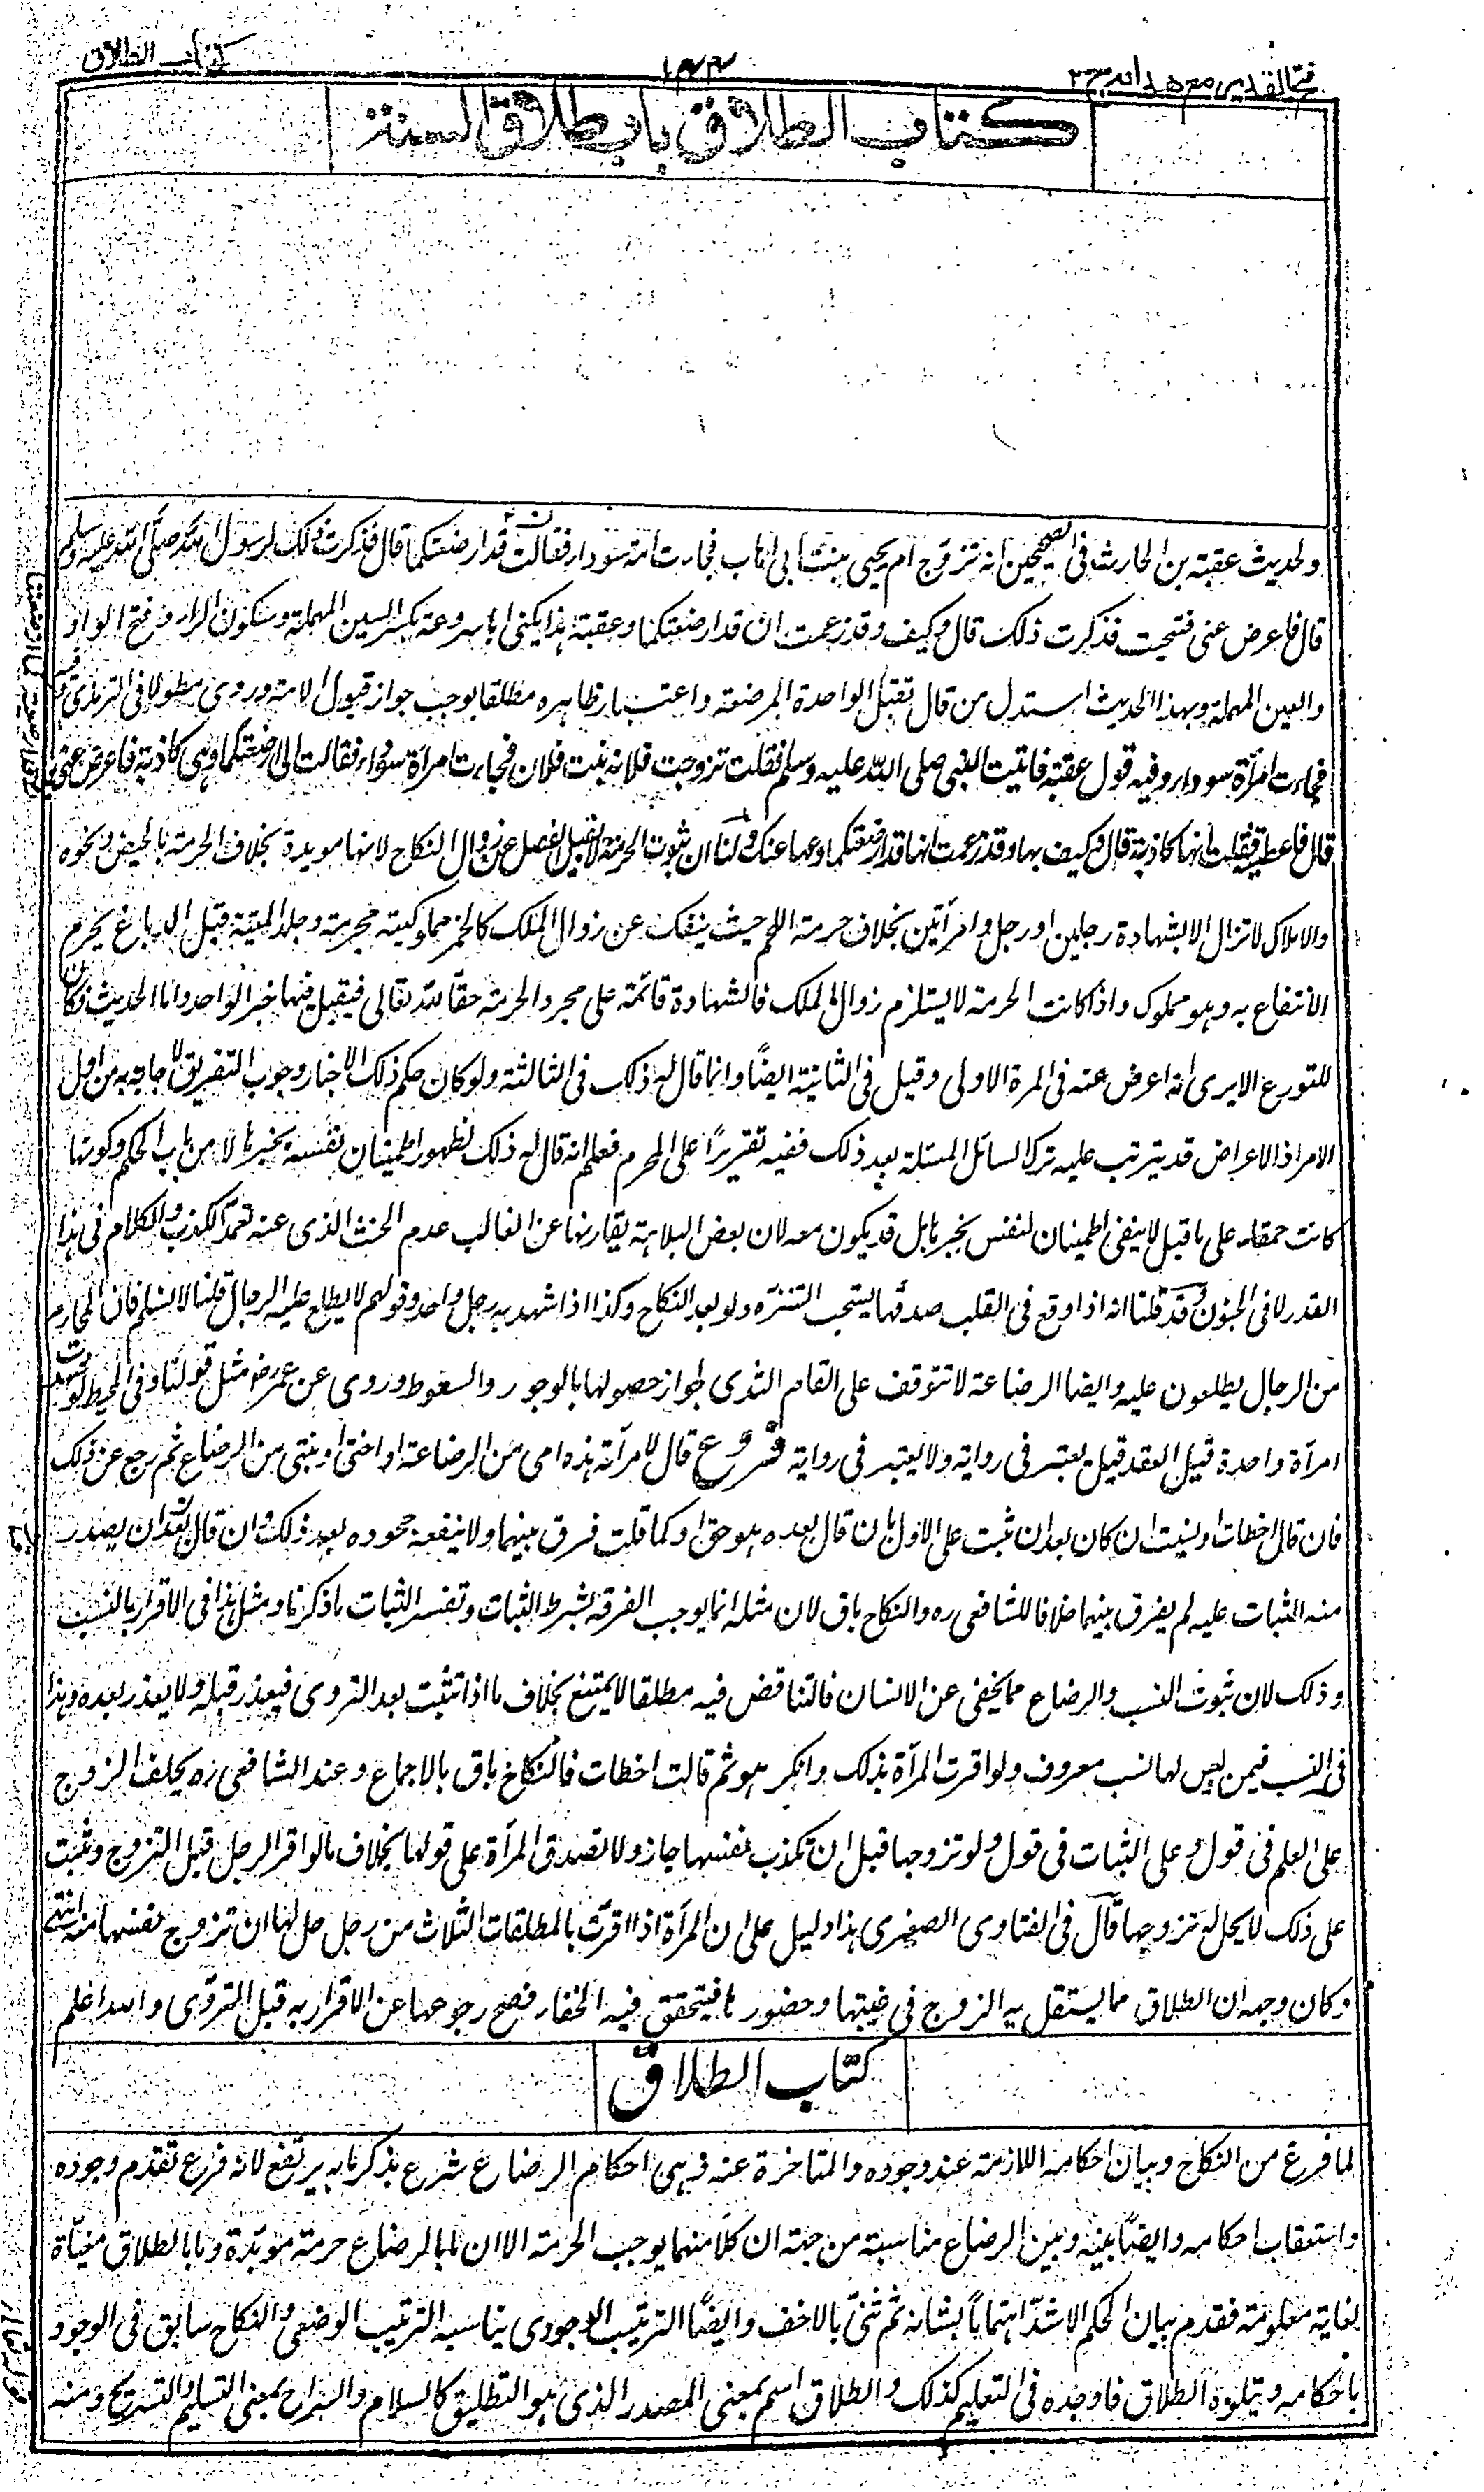 فتح القدير مع هدايه ج ٢
كتاب الطلاق
كتاب الطلاق باب طلاق السنة
ولحديث عقبة بن الحارث فى الصحيحين انه تزوج ام يحيى بنت ابى اهاب فجاءت امة سوداء فقالت قد ارضعتكما قال فذكرت ذلك لرسول الله صلى الله عليه وسلم
قال فاعرض عنى فتنحيت فذكرت ذلك قال وكيف وقد زعمت ان قد ارضعتكما وعقبة هذا يكنى ابا سروعة بكسر السين المهملة وسكون الراء وفتح الواو
والعين المهملة وبهذا الحديث استدل من قال تقبل الواحدة المرضعة واعتبار ظاهره مطلقا يوجب جواز قبول الامة وروى مطولا فى الترمذى وفيه
فجاءت امرأة سوداء وفيه قول عقبة فاتيت النبى صلى الله عليه وسلم فقلت تزوجت فلانة بنت فلان فجاءت امرأة سوداء فقالت انى ارضعتكما وهى كاذبة فاعرض عنى
قال فاتيته فقلت انها كاذبة قال وكيف بها وقد زعمت انها قد ارضعتكما دعها عنك ولنا ان ثبوت الحرمة لا يقبل الفصل عن زوال النكاح لانها مويدة بخلاف الحرمة بالحيض ونحوه
والاملاك لا تزال الا بشهادة رجلين او رجل وامرأتين بخلاف حرمة اللحم حيث ينفك عن زوال الملك كالخمر مملوكيته محرمة وجلد الميتة قبل الدباغ يحرم
الانتفاع به وهو مملوك واذا كانت الحرمة لا يستلزم زوال الملك فالشهادة قائمة على مجرد الحرمة حقا لله تعالى فيقبل فيها خبر الواحد واما الحديث فكان
للتورع الا يرى انه اعرض عنه فى المرة الاولى وقيل فى الثانية ايضًا وانما قال له ذلك فى الثالثة ولو كان حكم ذلك الاخبار وجوب التفريق لاجابه به من اول
الامر اذ الاعراض قد يترتب عليه ترك السائل المسئلة بعد ذلك ففيه تقريرًا على المحرم فعلم انه قال له ذلك لظهور اطمينان نفسه بخبرها لا من باب الحكم وكونها
كانت حمقاء على ما قيل لا ينفى اطمينان لنفس بخبرها بل قد يكون معه لان بعض البلاهة يقارنها عن الغالب عدم الخبث الذى عنه تعمد الكذب والكلام فى هذا
القدر لا فى الجنون وقد قلنا انه اذا وقع فى القلب صدقها يستحب التنزه ولو بعد النكاح وكذا اذا شهد به رجل واحد وقولهم لا يطلع عليه الرجال قلنا لا نسلم فان المحارم
من الرجال يطلعون عليه وايضا الرضاعة لا تتوقف على القام الثدى لجواز حصولها بالوجور والسعوط وروى عن عمر رض مثل قولنا وفى المحيط لو شهدت
امرأة واحدة قبل العقد قيل يعتبر فى رواية ولا يعتبر فى رواية فروع قال لامرأته هذه امى من الرضاعة او اختى او بنتى من الرضاع ثم رجع عن ذلك
فان قال اخطات او نسيت ان كان بعد ان ثبت على الاول بان قال بعده هو حق او كما قلت فرق بينهما ولا ينفعه جحوده بعد ذلك وان قال قبل ان يصدر
منه الثبات عليه لم يفرق بينهما خلافا للشافعى ره والنكاح باق لان مثله انما يوجب الفرقة بشرط الثبات وتفسير الثبات ما ذكرنا ومثل هذا فى الاقرار بالنسب
وذلك لان ثبوت النسب والرضاع مما يخفى عن الانسان فالتناقض فيه مطلقا لا يمتنع بخلاف ما اذا تثبت بعد التروى فيعذر قبله ولا يعذر بعده وهذا
فى النسب فيمن ليس لها نسب معروف ولو اقرت المرأة بذلك وانكر هو ثم قالت اخطات فالنكاح باق بالاجماع وعند الشافعى ره يحلف الزوج
على العلم فى قول وعلى الثبات فى قول ولو تزوجها قبل ان تكذب نفسها جاز ولا تصدق المرأة على قولها بخلاف ما لو اقر الرجل قبل التزوج وثبت
على ذلك لا يحل له تزوجها قال فى الفتاوى الصغرى هذا دليل على ان المرأة اذا اقرت بالمطلقات الثلاث من رجل حل لها ان تزوج نفسها منه انتهى
وكان وجهه ان الطلاق مما يستقل به الزوج فى غيبتها وحضورها فيتحقق فيه الخفاء فصح رجوعها عن الاقرار به قبل التروّى والله اعلم
كتاب الطلاق
لما فرغ من النكاح وبيان احكامه اللازمة عند وجوده والمتاخرة عنه وهى احكام الرضاع شرع بذكر ما به يرتفع لانه فرع تقدم وجوده
واستعقاب احكامه وايضًا بينه وبين الرضاع مناسبة من جهة ان كلا منهما يوجب الحرمة الا ان ما بالرضاع حرمة موبّدة وما بالطلاق مغيّاة
بغاية معلومة فقدم بيان الحكم الاشدّ اهتمامًا بشانه ثم ثنّى بالاخف وايضًا الترتيب الوجودى يناسبه الترتيب الوضعى والنكاح سابق فى الوجود
باحكامه ويتلوه الطلاق فاوجده فى التعليم كذلك والطلاق اسم بمعنى المصدر الذى هو التطليق كالسلام والسراح بمعنى التسليم والتسريح ومنه